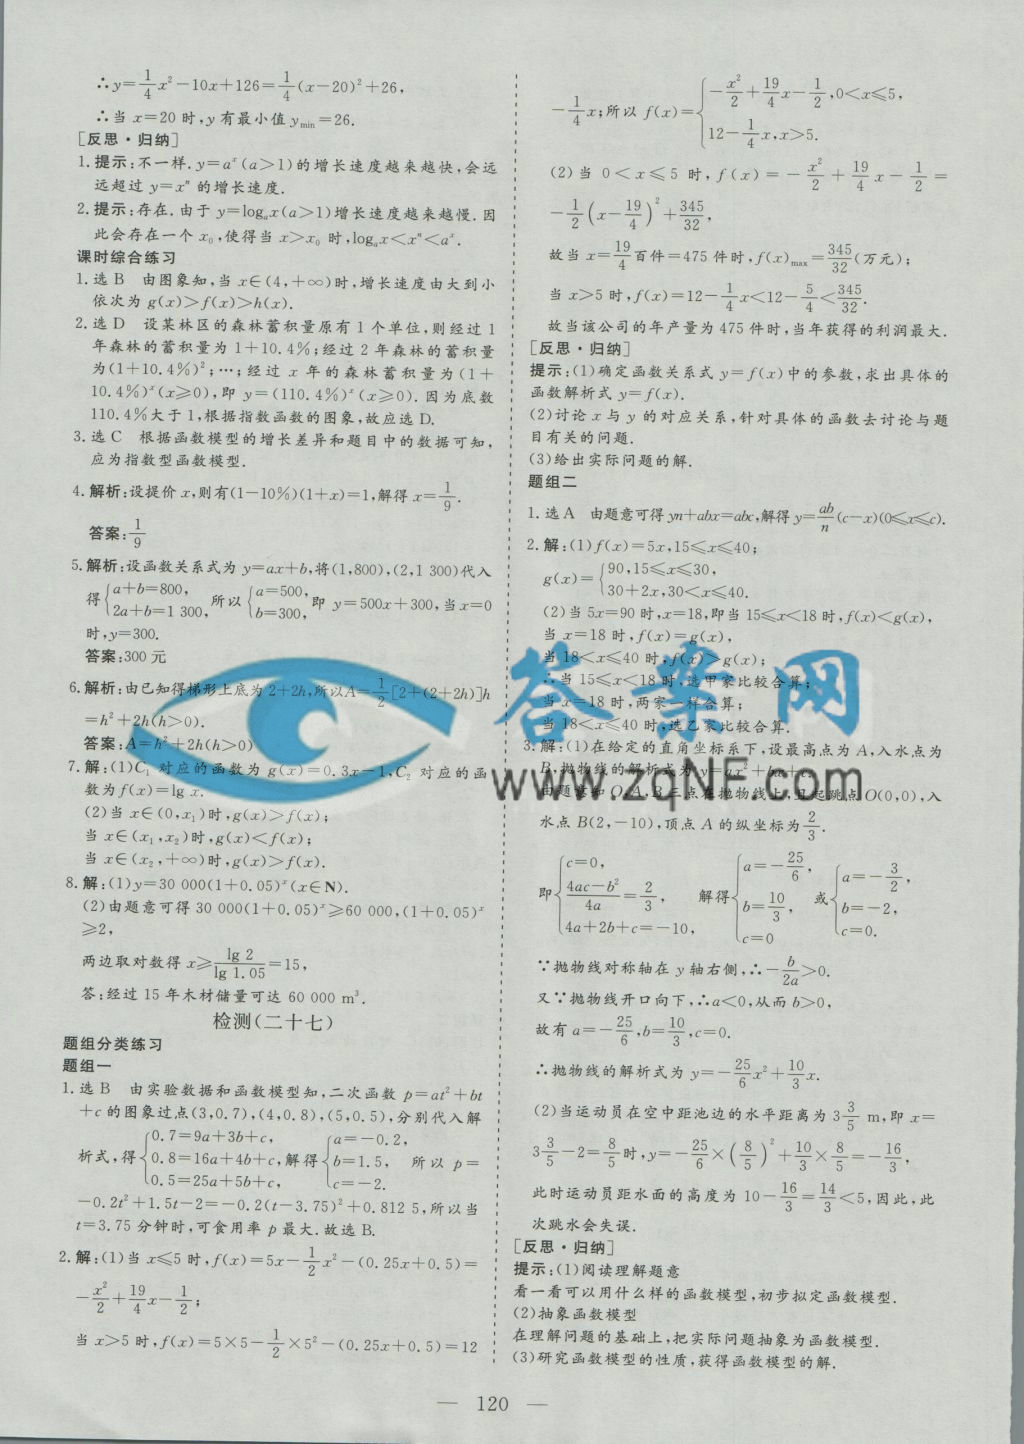 ∴y=1/4x²-10x+126=1/4(x-20)²+26,
∴当 x=20 时,y 有最小值 y_min=26.
[反思·归纳]
1.提示:不一样. y=aˣ(a>1)的增长速度越来越快,会远
远超过 y=xⁿ 的增长速度.
2.提示:存在. 由于 y=logₐx(a>1)增长速度越来越慢. 因
此会存在一个 x₀,使得当 x>x₀ 时,logₐx<xⁿ<aˣ.
课时综合练习
1.选 B 由图象知,当 x∈(4,+∞)时,增长速度由大到小
依次为 g(x)>f(x)>h(x).
2.选 D 设某林区的森林蓄积量原有 1 个单位,则经过 1
年森林的蓄积量为 1+10.4%;经过 2 年森林的蓄积量
为(1+10.4%)²;…;经过 x 年的森林蓄积量为(1+
10.4%)ˣ(x≥0),即 y=(110.4%)ˣ(x≥0). 因为底数
110.4%大于 1,根据指数函数的图象,故应选 D.
3.选 C 根据函数模型的增长差异和题目中的数据可知,
应为指数型函数模型.
4.解析:设提价 x,则有(1-10%)(1+x)=1,解得 x=1/9.
答案:1/9
5.解析:设函数关系式为 y=ax+b,将(1,800),(2,1 300)代入
得{a+b=800, 2a+b=1 300, 所以{a=500, b=300, 即 y=500x+300,当 x=0
时,y=300.
答案:300 元
6.解析:由已知得梯形上底为 2+2h,所以A=1/2[2+(2+2h)]h
=h²+2h(h>0).
答案:A=h²+2h(h>0)
7.解:(1)C₁ 对应的函数为 g(x)=0.3x-1,C₂ 对应的函
数为 f(x)=lg x.
(2)当 x∈(0,x₁)时,g(x)>f(x);
当 x∈(x₁,x₂)时,g(x)<f(x);
当 x∈(x₂,+∞)时,g(x)>f(x).
8.解:(1)y=30 000(1+0.05)ˣ(x∈N).
(2)由题意可得 30 000(1+0.05)ˣ≥60 000,(1+0.05)ˣ
≥2,
两边取对数得 x≥lg 2/lg 1.05=15,
答:经过 15 年木材储量可达 60 000 m³.
检测(二十七)
题组分类练习
题组一
1.选 B 由实验数据和函数模型知,二次函数 p=at²+bt
+c 的图象过点(3,0.7),(4,0.8),(5,0.5),分别代入解
析式,得{0.7=9a+3b+c, 0.8=16a+4b+c, 0.5=25a+5b+c, 解得{a=-0.2, b=1.5, c=-2. 所以 p=
-0.2t²+1.5t-2=-0.2(t-3.75)²+0.812 5,所以当
t=3.75 分钟时,可食用率 p 最大. 故选 B.
2.解:(1)当 x≤5 时,f(x)=5x-1/2x²-(0.25x+0.5)=
-x²/2+19/4x-1/2;
当 x>5 时,f(x)=5×5-1/2×5²-(0.25x+0.5)=12
-1/4x;所以 f(x)={-x²/2+19/4x-1/2,0<x≤5, 12-1/4x,x>5.
(2)当 0<x≤5 时,f(x)=-x²/2+19/4x-1/2=
-1/2(x-19/4)²+345/32,
故当 x=19/4百件=475 件时,f(x)max=345/32(万元);
当 x>5 时,f(x)=12-1/4x<12-5/4<345/32.
故当该公司的年产量为 475 件时,当年获得的利润最大.
[反思·归纳]
提示:(1)确定函数关系式 y=f(x)中的参数,求出具体的
函数解析式 y=f(x).
(2)讨论 x 与 y 的对应关系,针对具体的函数去讨论与题
目有关的问题.
(3)给出实际问题的解.
题组二
1.选 A 由题意可得 yn+abx=abc,解得 y=ab/n(c-x)(0≤x≤c).
2.解:(1)f(x)=5x,15≤x≤40;
g(x)={90,15≤x≤30, 30+2x,30<x≤40.
(2)当 5x=90 时,x=18,即当 15≤x<18 时,f(x)<g(x),
当 x=18 时,f(x)=g(x),
当 18<x≤40 时,f(x)>g(x);
∴当 15≤x<18 时,选甲家比较合算;
当 x=18 时,两家一样合算;
当 18<x≤40 时,选乙家比较合算.
3.解:(1)在给定的直角坐标系下,设最高点为 A,入水点为
B,抛物线的解析式为 y=ax²+bx+c.
由题意知,O,A,B三点在抛物线上,且起跳点O(0,0),入
水点 B(2,-10),顶点 A 的纵坐标为2/3.
即{c=0, (4ac-b²)/4a=2/3, 4a+2b+c=-10, 解得{a=-25/6, b=10/3, c=0 或{a=-3/2, b=-2, c=0.
∵抛物线对称轴在 y 轴右侧,∴-b/2a>0.
又∵抛物线开口向下,∴a<0,从而 b>0,
故有 a=-25/6,b=10/3,c=0.
∴抛物线的解析式为 y=-25/6x²+10/3x.
(2)当运动员在空中距池边的水平距离为 3 3/5 m,即 x=
3 3/5-2=8/5时,y=-25/6×(8/5)²+10/3×8/5=-16/3,
此时运动员距水面的高度为 10-16/3=14/3<5,因此,此
次跳水会失误.
[反思·归纳]
提示:(1)阅读理解题意
看一看可以用什么样的函数模型,初步拟定函数模型.
(2)抽象函数模型
在理解问题的基础上,把实际问题抽象为函数模型.
(3)研究函数模型的性质,获得函数模型的解.
答案网
www.zqNF.com
— 120 —